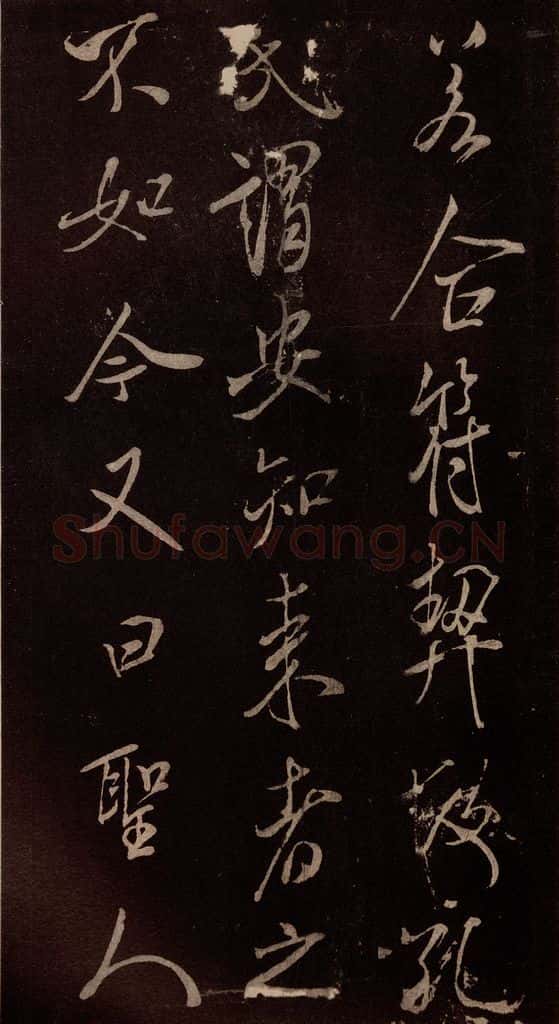 若合符契故孔
氏謂安知来者之
不如今又曰聖人
Shufawang.CN